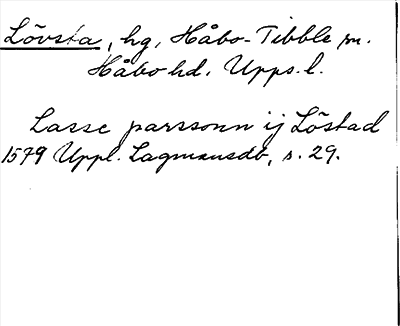 Lövsta, hg, Håbo-Tibble sn.
Håbo hd. Upps. l.
Lasse parssonn ij Löstad
1579 Uppl. Lagmansdb, s. 29.